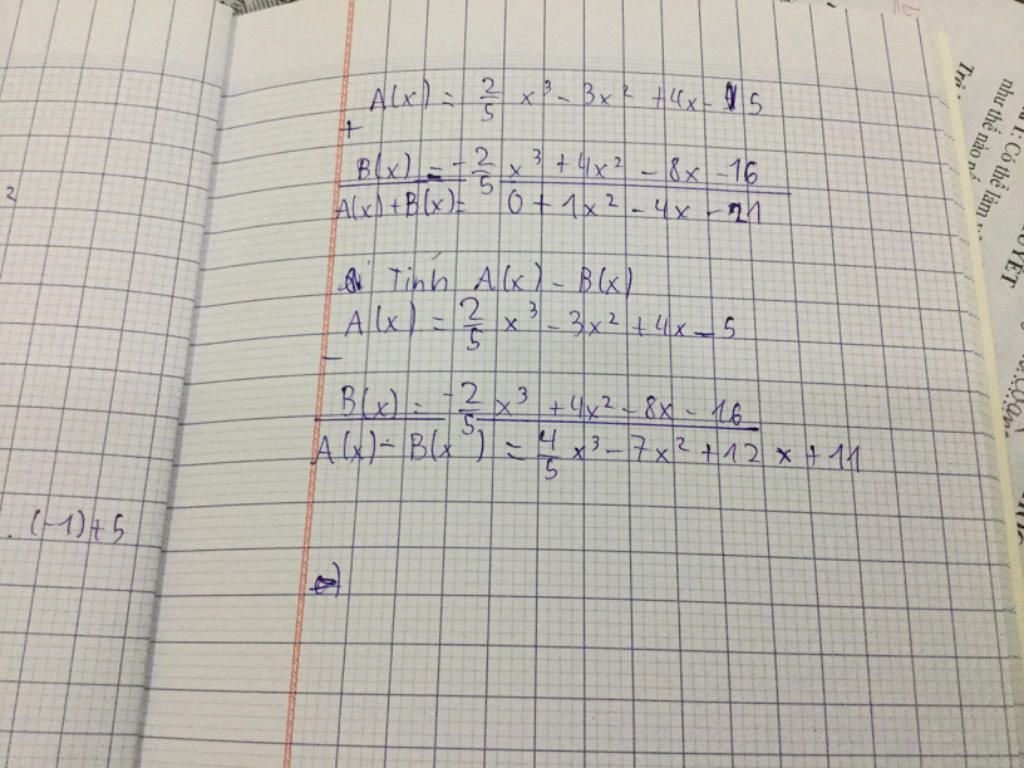 2
. (-1)+5
A(x) = 2/5 x³ - 3x² + 4x - 5
+
B(x) = -2/5 x³ + 4x² - 8x - 16
A(x) + B(x) = 0 + 1x² - 4x - 21
Tính A(x) - B(x)
A(x) = 2/5 x³ - 3x² + 4x - 5
-
B(x) = -2/5 x³ + 4x² - 8x - 16
A(x) - B(x) = 4/5 x³ - 7x² + 12x + 11
như thế nào
: Có thể làm